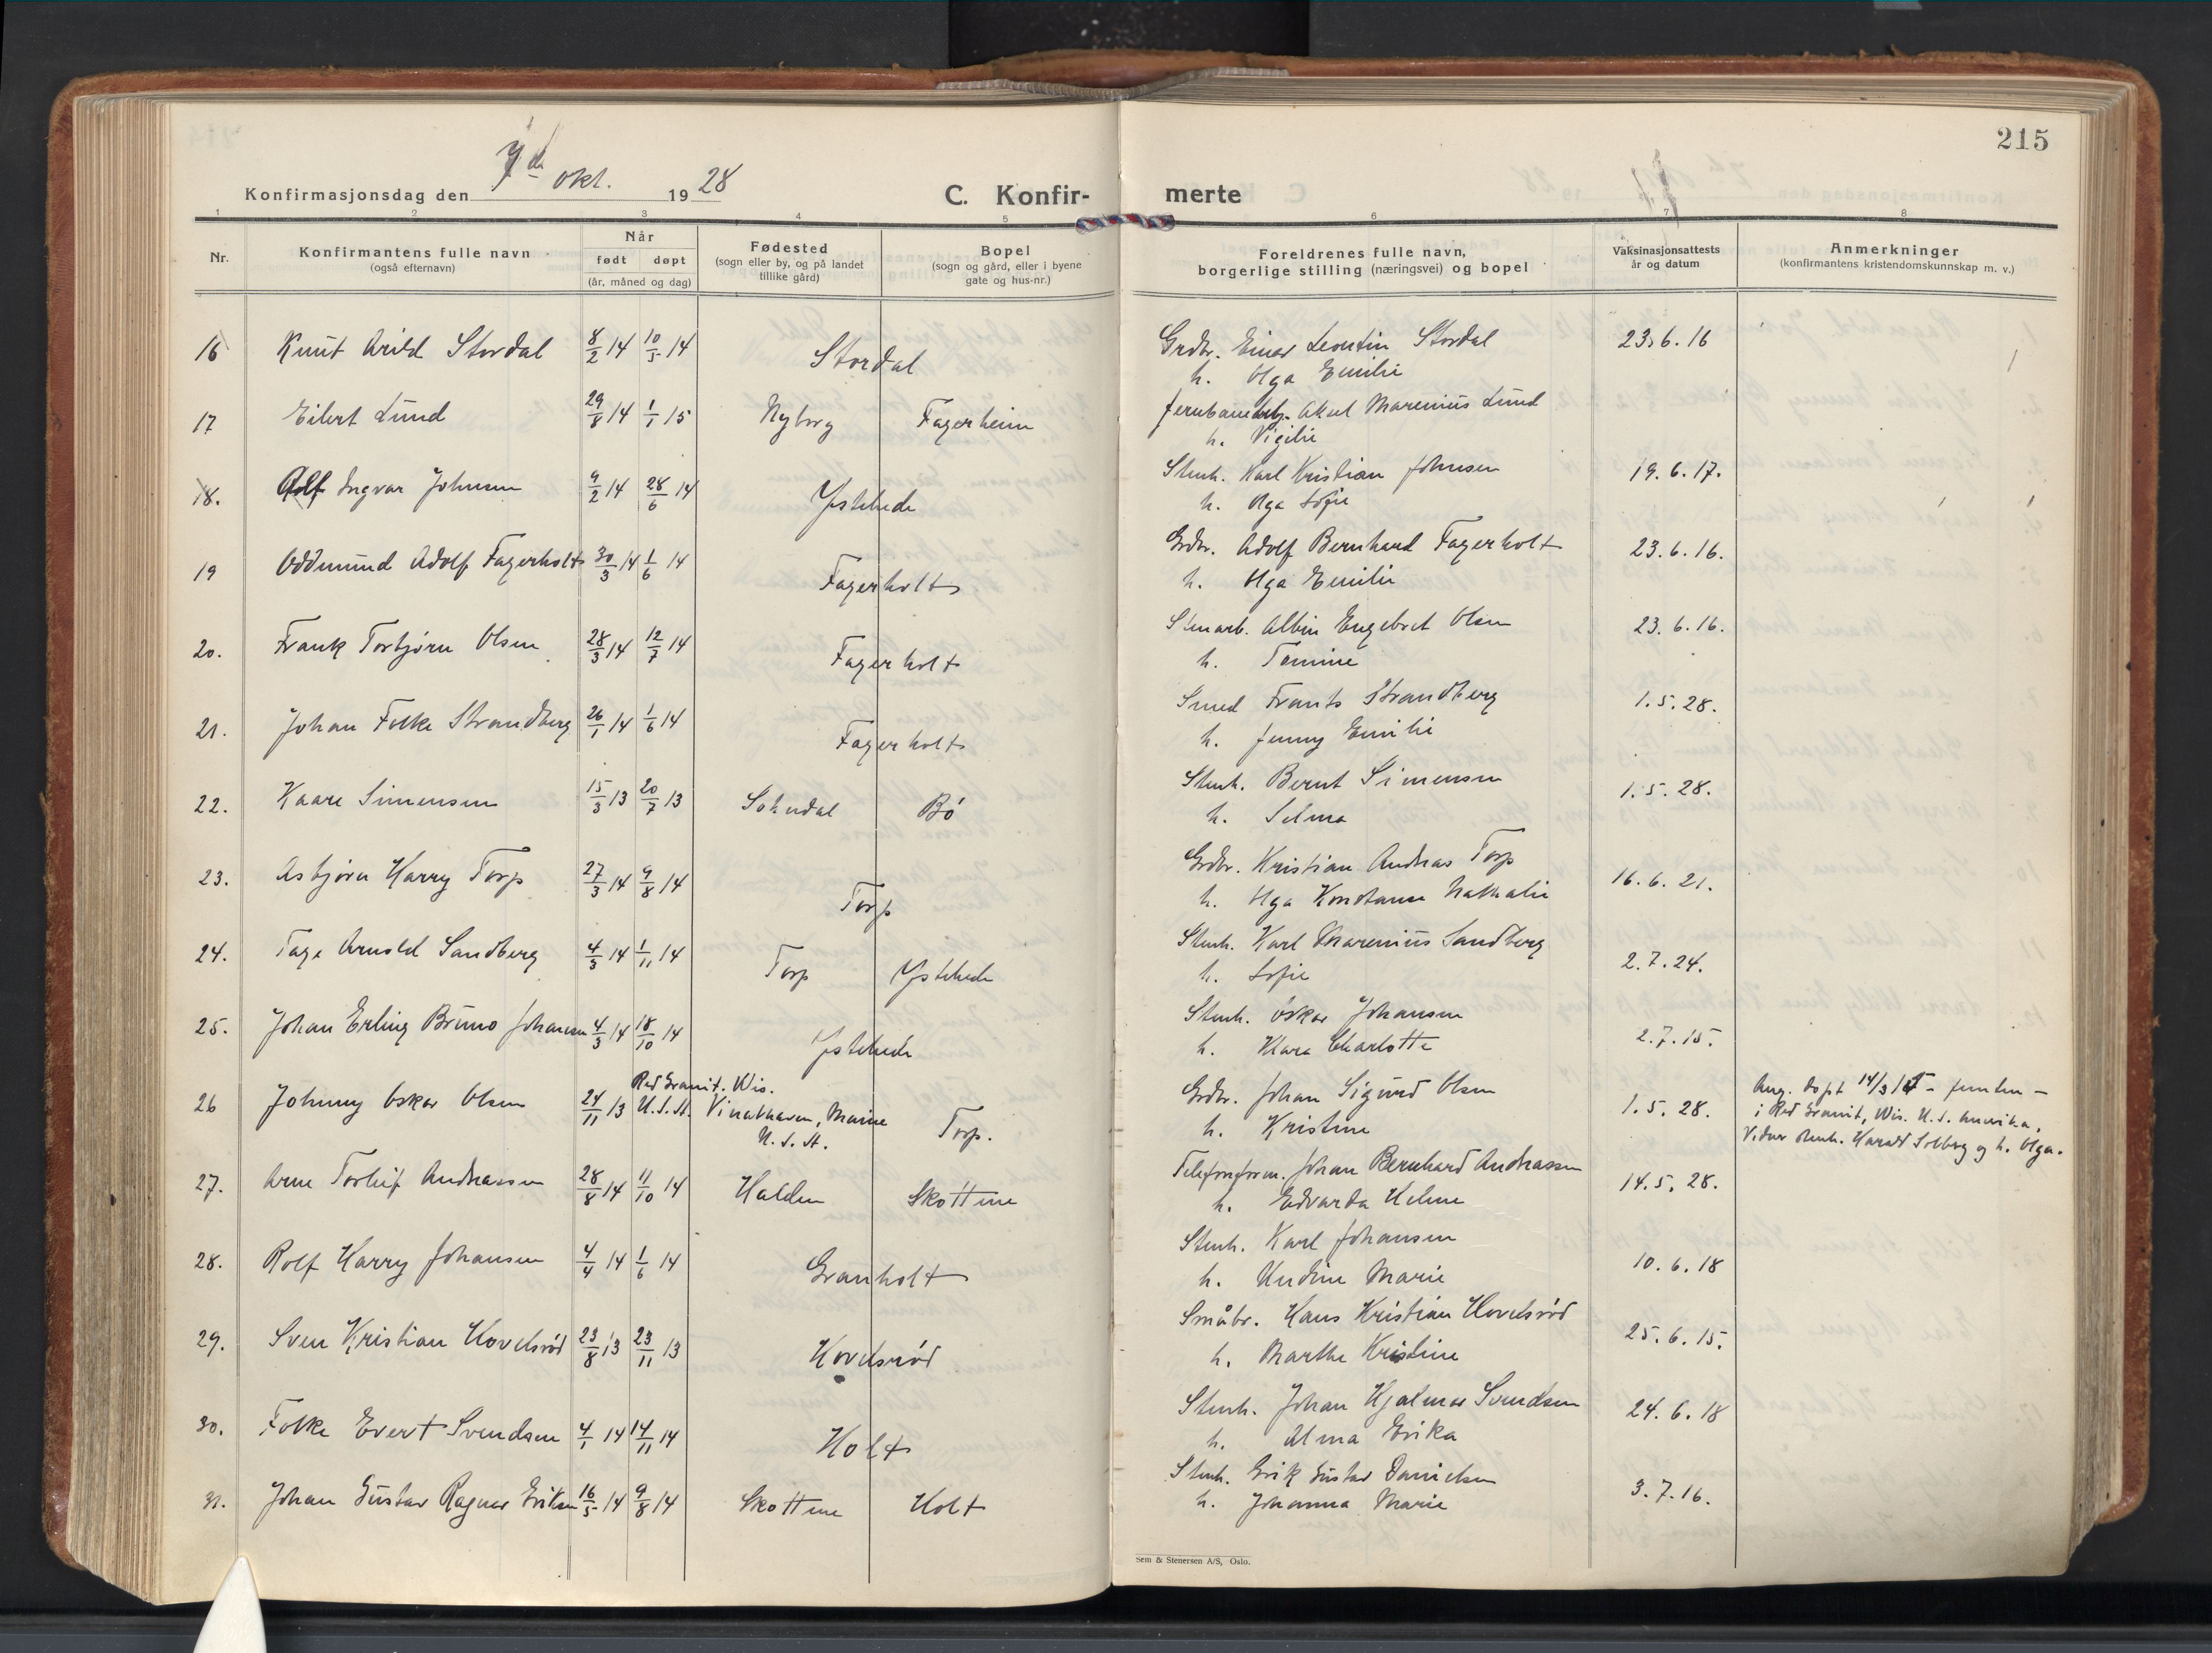 215
7de okt. 28
Konfirmasjonsdag den 19
C. Konfir-
merte
1 2 3 4 5 6 7 8
Nr.
Konfirmantens fulle navn
(også efternavn)
Når
født døpt
(år, måned og dag)
Fødested
(sogn eller by, og på landet
tillike gård)
Bopel
(sogn og gård, eller i byene
gate og hus-nr.)
Foreldrenes fulle navn,
borgerlige stilling (næringsvei) og bopel
Vaksinasjonsattests
år og datum
Anmerkninger
(konfirmantens kristendomskunnskap m. v.)
16 Knut Arild Stordal 8/2 14 10/5 14 Stordal Grdbr. Einar Leontin Stordal 23.6.16
h. Olga Emilie
17 Eilert Lund 29/8 14 1/1 15 Nyborg Fagerheim Jernbanearb. Aksel Marenius Lund
h. Vigilie
18. Rolf Ingvar Johnsen 9/2 14 28/6 14 Ystehede Stenh. Karl Kristian Johnsen 19.6.17.
h. Olga Sofie
19 Oddmund Adolf Fagerholt 30/3 14 1/6 14 Fagerholt Grdbr. Adolf Bernhard Fagerholt 23.6.16.
h. Olga Emilie
20. Frank Torbjørn Olsen 28/3 14 12/7 14 Fagerholt Stenarb. Albin Engebret Olsen 23.6.16.
h. Tomine
21. Johan Folke Strandberg 26/1 14 1/6 14 Fagerholt Smed Frants Strandberg 1.5.28.
h. Jenny Emilie
22. Kaare Simensen 15/3 13 20/7 13 Sokndal Bø Stenh. Bernt Simensen 1.5.28.
h. Selma
23. Asbjørn Harry Torp 27/3 14 9/8 14 Torp Grdbr. Kristian Andreas Torp 16.6.21.
h. Olga Konstanse Nathalie
24. Tage Arnold Sandberg 4/3 14 1/11 14 Torp Ystehede Stenh. Karl Marenius Sandberg 2.7.24.
h. Sofie
25. Johan Erling Bruno Johansen 4/3 14 18/10 14 Ystehede Stenh. Oskar Johansen 2.7.15.
h. Klara Charlotte
26 Johnny Oskar Olsen 24/11 13 Red Granit. Wis. U.S.A. Vinalhaven, Maine U.S.A. Torp. Grdbr. Johan Sigurd Olsen 1.5.28.
h. Kristine
Ang. døpt 14/3 15 - femten -
i Red Granit, Wis. U.S. Amerika.
Vidner stenh. Harald Solberg og h. Olga.
27. Arne Torleif Andreassen 28/8 14 11/10 14 Halden Skottene Telefonform. Johan Bernhard Andreassen 14.5.28.
h. Edvarda Helene
28. Rolf Harry Johansen 4/4 14 1/6 14 Granholt Stenh. Karl Johansen 10.6.18
h. Undine Marie
29. Sven Kristian Hovelsrød 23/8 13 23/11 13 Hovelsrød Småbr. Hans Kristian Hovelsrød 25.6.15.
h. Marthe Kristine
30. Folke Evert Svendsen 4/1 14 14/11 14 Holt Stenh. Johan Hjalmar Svendsen 24.6.18
h. Alma Erika
31. Johan Gustav Ragnar Eriksen 16/5 14 9/8 14 Skottene Holt Stenh. Erik Gustav Danielsen 3.7.16.
h. Johanna Marie
Sem & Stenersen A/S, Oslo.